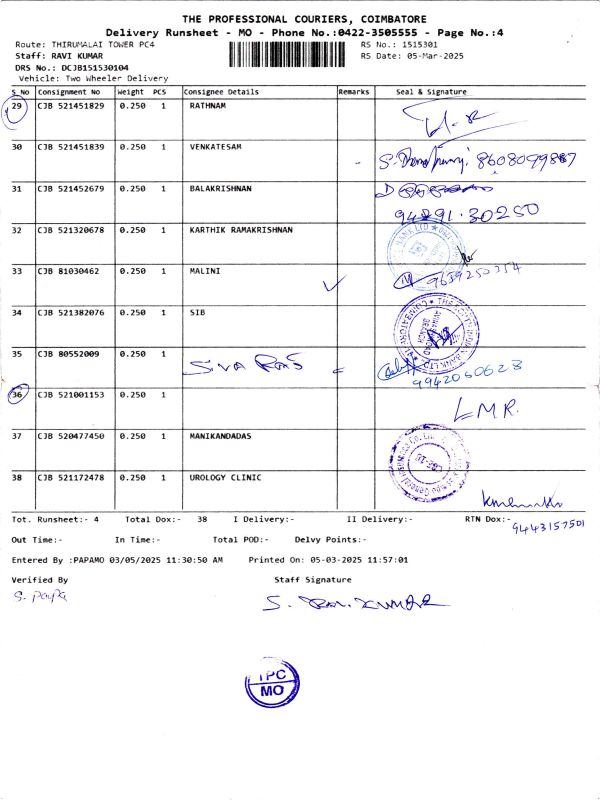 THE PROFESSIONAL COURIERS, COIMBATORE
Delivery Runsheet - MO - Phone No.:0422-3505555 - Page No.:4
Route: THIRUMALAI TOWER PC4 RS No.: 1515301
Staff: RAVI KUMAR RS Date: 05-Mar-2025
DRS No.: DCJB151530104
Vehicle: Two Wheeler Delivery
S_No Consignment No Weight PCS Consignee Details Remarks Seal & Signature
29 CJB 521451829 0.250 1 RATHNAM
30 CJB 521451839 0.250 1 VENKATESAM
31 CJB 521452679 0.250 1 BALAKRISHNAN
94891.30250
32 CJB 521320678 0.250 1 KARTHIK RAMAKRISHNAN
33 CJB 81030462 0.250 1 MALINI
34 CJB 521382076 0.250 1 SIB
35 CJB 80552009 0.250 1 SIVA
9942060628
36 CJB 521001153 0.250 1 LMR.
37 CJB 520477450 0.250 1 MANIKANDADAS
38 CJB 521172478 0.250 1 UROLOGY CLINIC
Tot. Runsheet:- 4 Total Dox:- 38 I Delivery:- II Delivery:- RTN Dox:-
9443157501
Out Time:- In Time:- Total POD:- Delvy Points:-
Entered By :PAPAMO 03/05/2025 11:30:50 AM Printed On: 05-03-2025 11:57:01
Verified By Staff Signature
S. Papa S. KUMAR
TPC
MO